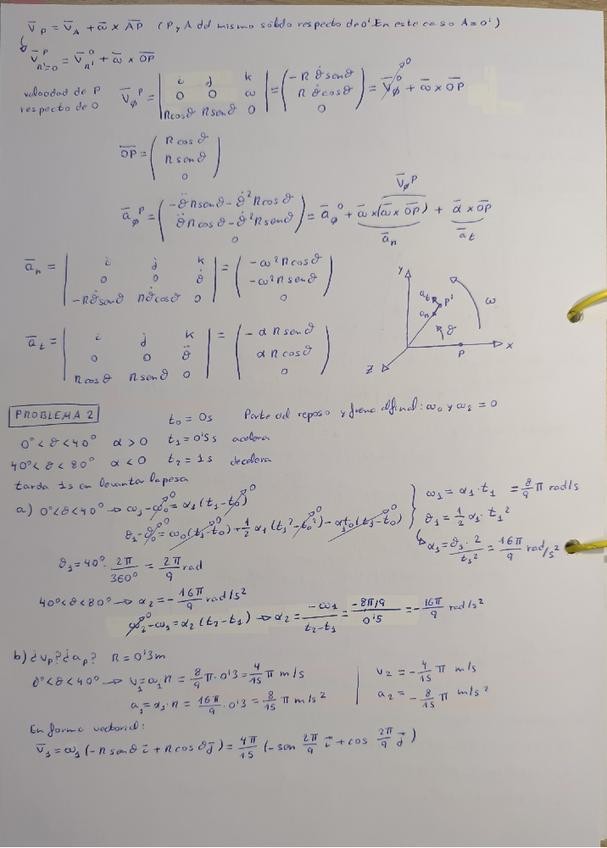 V̄_P = V̄_A + ω̄ × AP̄ (P y A del mismo sólido respecto de 0' En este caso A=0')
V̄^P_{n'=0} = V̄^0_{n'} + ω̄ × OP̄
velocidad de P respecto de 0 V̄_ø^P = | i j k ; 0 0 ω ; R cosϑ R senϑ 0 | = ( -R ϑ̇ senϑ ; R ϑ̇ cosϑ ; 0 ) = V̄_ø^0 + ω̄ × OP̄
0
OP̄ = ( R cosϑ ; R senϑ ; 0 )
V̄_ø^P
ā_ø^P = ( -ϑ̈ R senϑ - ϑ̇² R cosϑ ; ϑ̈ R cosϑ - ϑ̇² R senϑ ; 0 ) = ā_ø^0 + ω̄ × (ω̄ × OP̄) + ᾱ × OP̄
ā_n ā_t
ā_n = | i j k ; 0 0 ϑ̇ ; -Rϑ̇ senϑ Rϑ̇ cosϑ 0 | = ( -ω² R cosϑ ; -ω² R senϑ ; 0 )
ā_t = | i j k ; 0 0 ϑ̈ ; R cosϑ R senϑ 0 | = ( -α R senϑ ; α R cosϑ ; 0 )
Y
a_t P'
a_n
ω
ϑ
P X
Z
PROBLEMA 2 t₀ = 0s Parte del reposo y frena al final: ω₀ y ω₂ = 0
0° < ϑ < 40° α > 0 t₁ = 0'5s acelera
40° < ϑ < 80° α < 0 t₂ = 1s decelera
tarda 1s en levantar la pesa
a) 0° < ϑ < 40° → ω₁ - ω₀ = α₁ (t₁ - t₀) ω₁ = α₁ · t₁ = 8/9 π rad/s
ϑ₁ - ϑ₀ = ω₀ (t₁ - t₀) + 1/2 α₁ (t₁² - t₀²) - α₁t₀ (t₁ - t₀) ϑ₁ = 1/2 α₁ · t₁²
ϑ₁ = 40° · 2π/360° = 2π/9 rad ↳ α₁ = ϑ₁ · 2 / t₁² = 16π/9 rad/s²
40° < ϑ < 80° → α₂ = - 16π/9 rad/s²
ω₂ - ω₁ = α₂ (t₂ - t₁) → α₂ = -ω₁ / (t₂ - t₁) = -8π/9 / 0'5 = - 16π/9 rad/s²
b) ¿v_P? ¿a_P? R = 0'3m
0° < ϑ < 40° → v₁ = ω₁ R = 8/9 π · 0'3 = 4/15 π m/s v₂ = - 4/15 π m/s
a₁ = α₁ · R = 16π/9 · 0'3 = 8/15 π m/s² a₂ = - 8/15 π m/s²
En forma vectorial:
V̄₁ = ω₁ (-R senϑ ī + R cosϑ j̄) = 4π/15 (-sen 2π/9 ī + cos 2π/9 j̄)